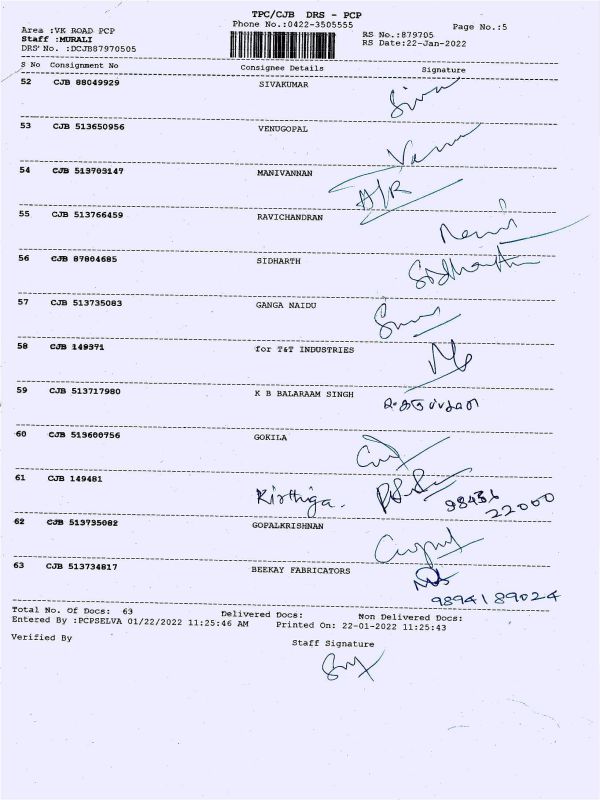 TPC/CJB DRS - PCP
Phone No.:0422-3505555
Page No.:5
Area :VK ROAD PCP
Staff :MURALI
DRS No. :DCJB87970505
RS No.:879705
RS Date:22-Jan-2022
S No Consignment No Consignee Details Signature
52 CJB 88049929 SIVAKUMAR
53 CJB 513650956 VENUGOPAL
54 CJB 513703147 MANIVANNAN
A/R
55 CJB 513766459 RAVICHANDRAN
56 CJB 87804685 SIDHARTH
Sidharth
57 CJB 513735083 GANGA NAIDU
58 CJB 149371 for T&T INDUSTRIES
59 CJB 513717980 K B BALARAAM SINGH
60 CJB 513600756 GOKILA
61 CJB 149481 Kirthiga.
98436
22000
62 CJB 513735082 GOPALKRISHNAN
63 CJB 513734817 BEEKAY FABRICATORS
9894189024
Total No. Of Docs: 63 Delivered Docs: Non Delivered Docs:
Entered By :PCPSELVA 01/22/2022 11:25:46 AM Printed On: 22-01-2022 11:25:43
Verified By Staff Signature